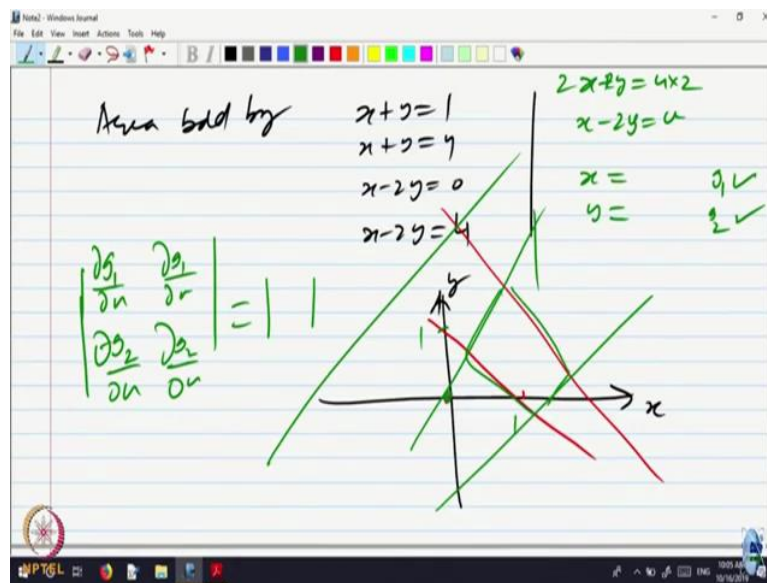 Note2 - Windows Journal
File Edit View Insert Actions Tools Help
Area bdd by
x+y=1
x+y=4
x-2y=0
x-2y=4
2x+2y=u×2
x-2y=v
x= g₁ ✓
y= g₂ ✓
| ∂g₁/∂u ∂g₁/∂v |
| ∂g₂/∂u ∂g₂/∂u | = | |
y
1
1
x
NPTEL
ENG
10/16/2019